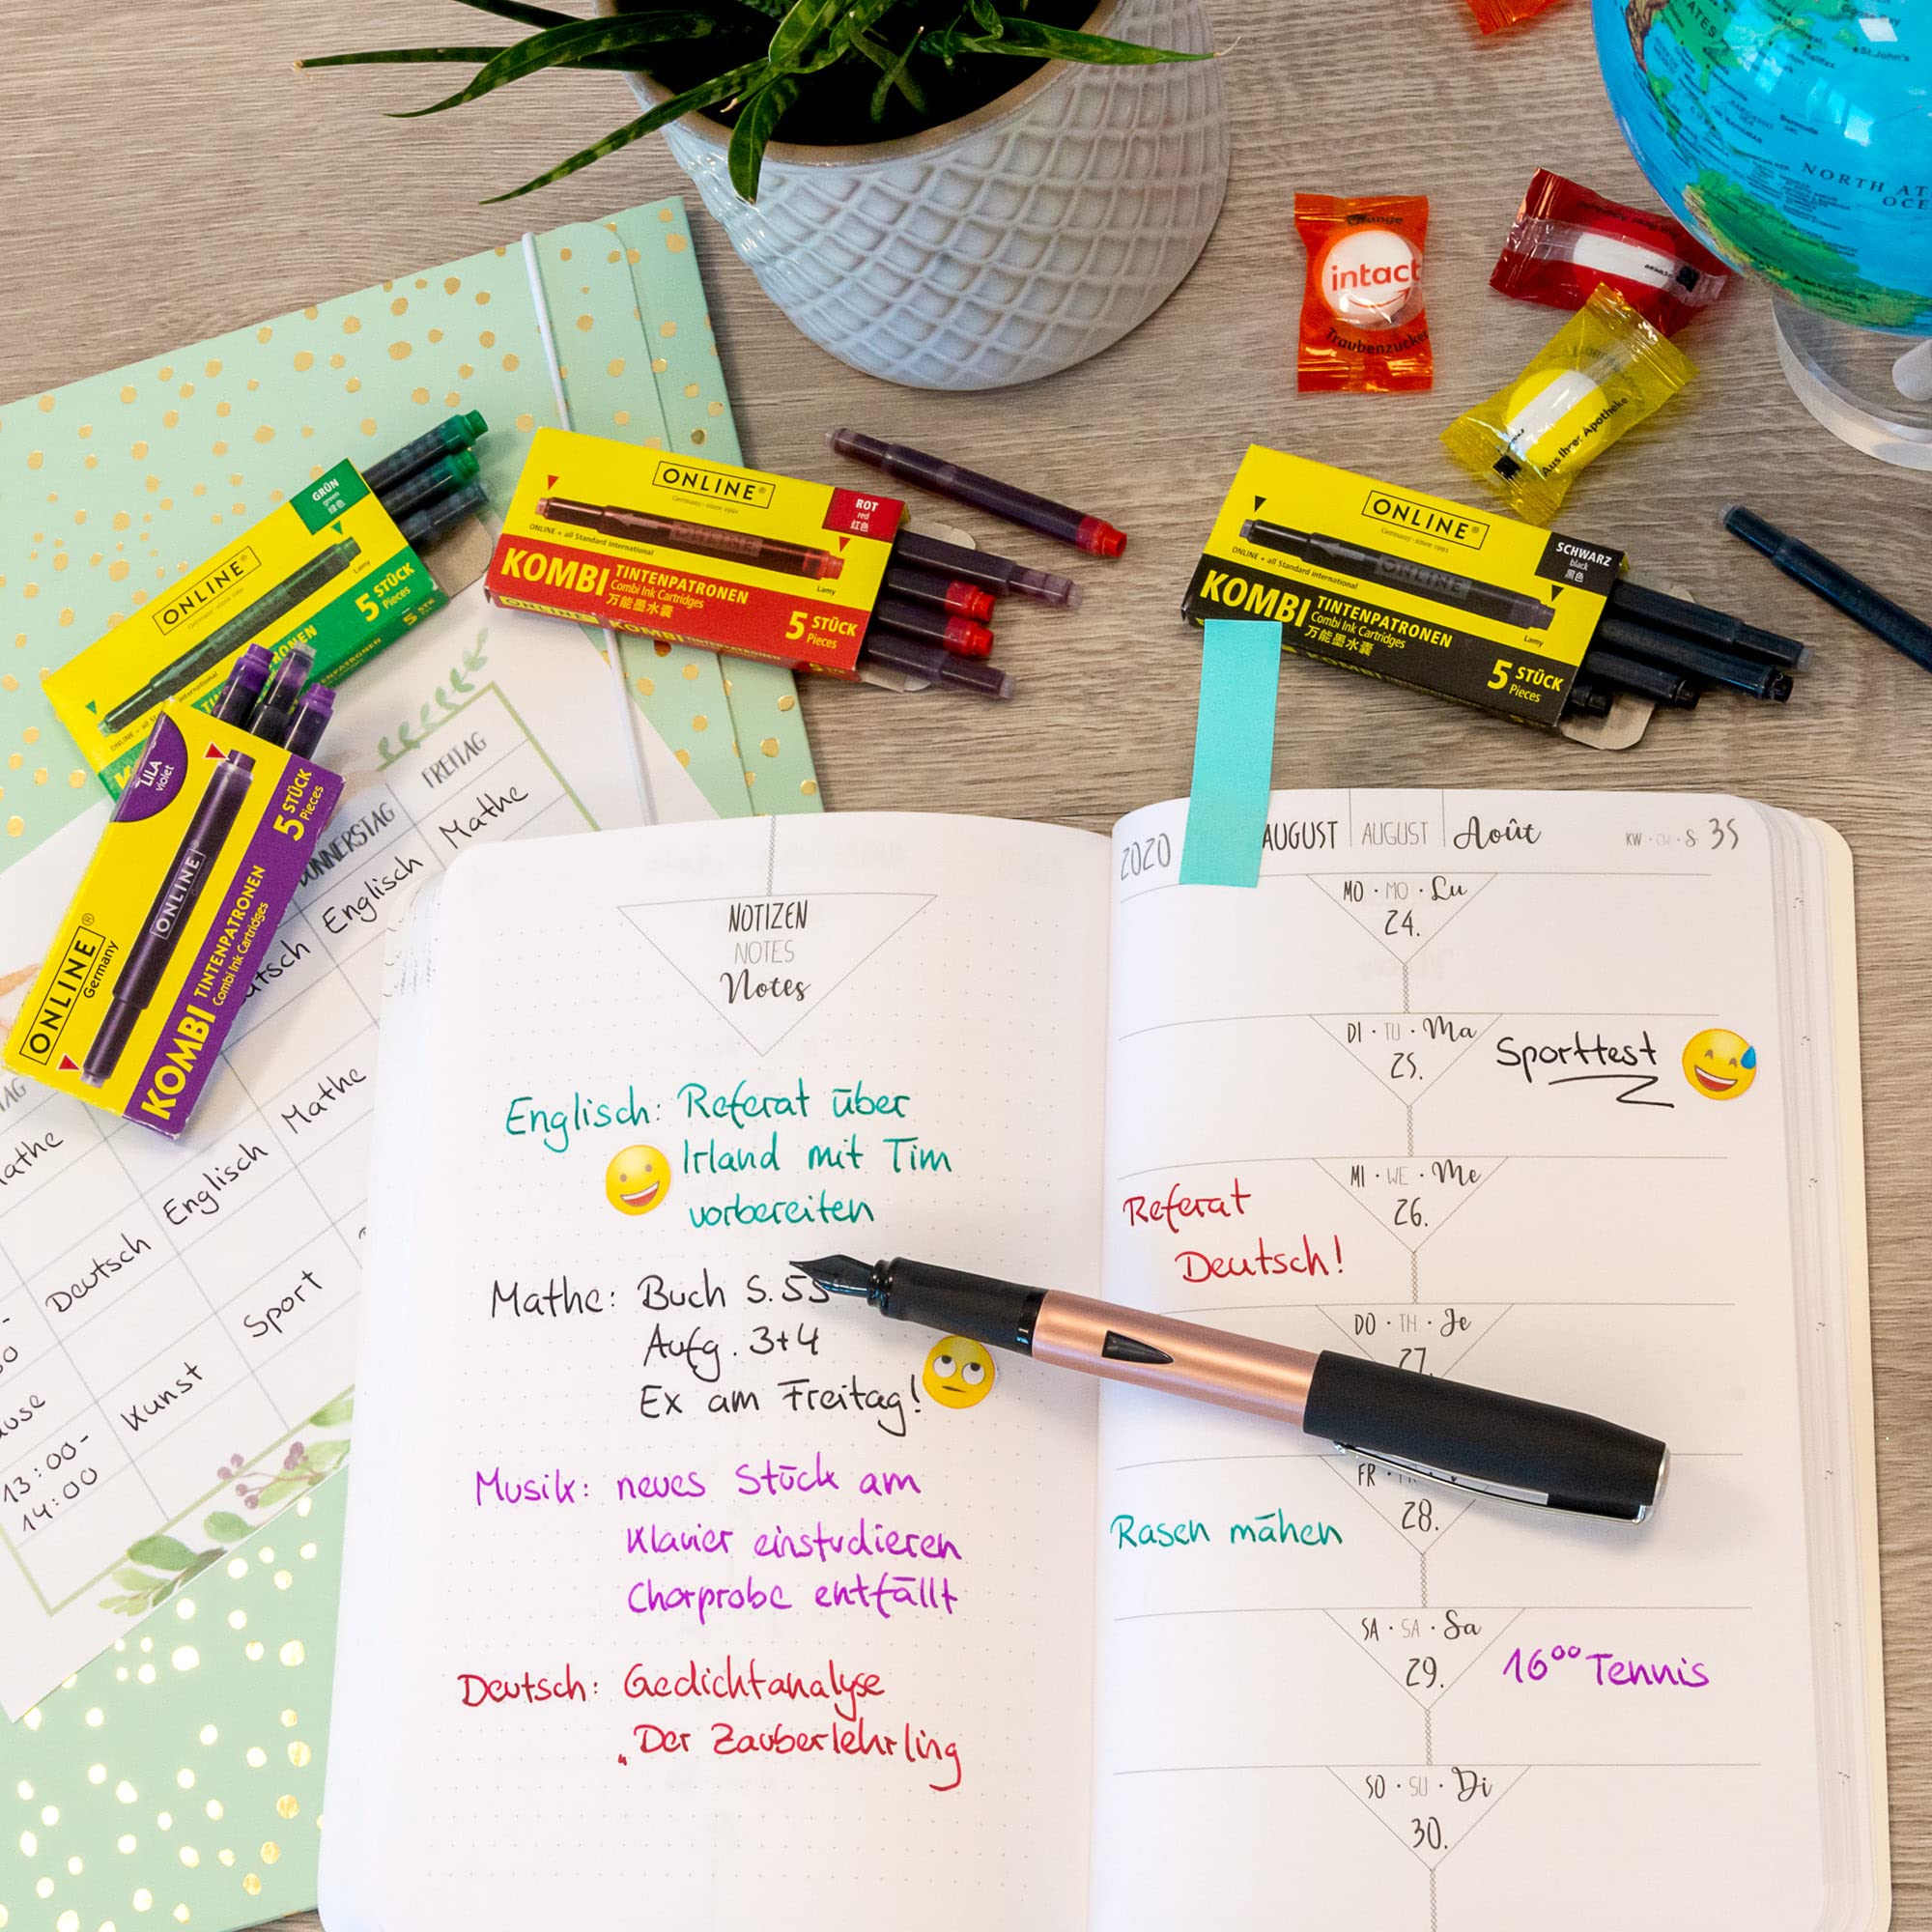 STATES
Halifax
St.John's
Bermuda
NORTH AT
OCE
Orange
intact
Traubenzucker
Aus Ihrer Apotheke
GRÜN
green
绿色
ONLINE®
Lamy
5 STÜCK
Pieces
ONLINE®
Germany · since 1991
ROT
red
红色
ONLINE + all Standard international
Lamy
KOMBI TINTENPATRONEN
Combi Ink Cartridges
万能墨水囊
5 STÜCK
Pieces
ONLINE®
Germany · since 1991
SCHWARZ
black
黑色
ONLINE + all Standard international
ONLINE
Lamy
KOMBI TINTENPATRONEN
Combi Ink Cartridges
万能墨水囊
5 STÜCK
Pieces
LILA
violet
ONLINE
ONLINE®
Germany
KOMBI TINTENPATRONEN
Combi Ink Cartridges
5 STÜCK
Pieces
FREITAG
Mathe
Englisch
Mathe
Englisch
Deutsch
Sport
Kunst
13:00-
14:00
NOTIZEN
NOTES
Notes
Englisch: Referat über
Irland mit Tim
vorbereiten
Mathe: Buch S. 55
Aufg. 3+4
Ex am Freitag!
Musik: neues Stück am
Klavier einstudieren
Chorprobe entfällt
Deutsch: Gedichtanalyse
„Der Zauberlehrling
2020
AUGUST | AUGUST | Août
KW · CW · S 35
MO · MO · Lu
24.
DI · TU · Ma
25.
Sporttest
MI · WE · Me
26.
Referat
Deutsch!
DO · TH · Je
27.
FR
28.
Rasen mähen
SA · SA · Sa
29.
16⁰⁰ Tennis
SO · SU · Di
30.